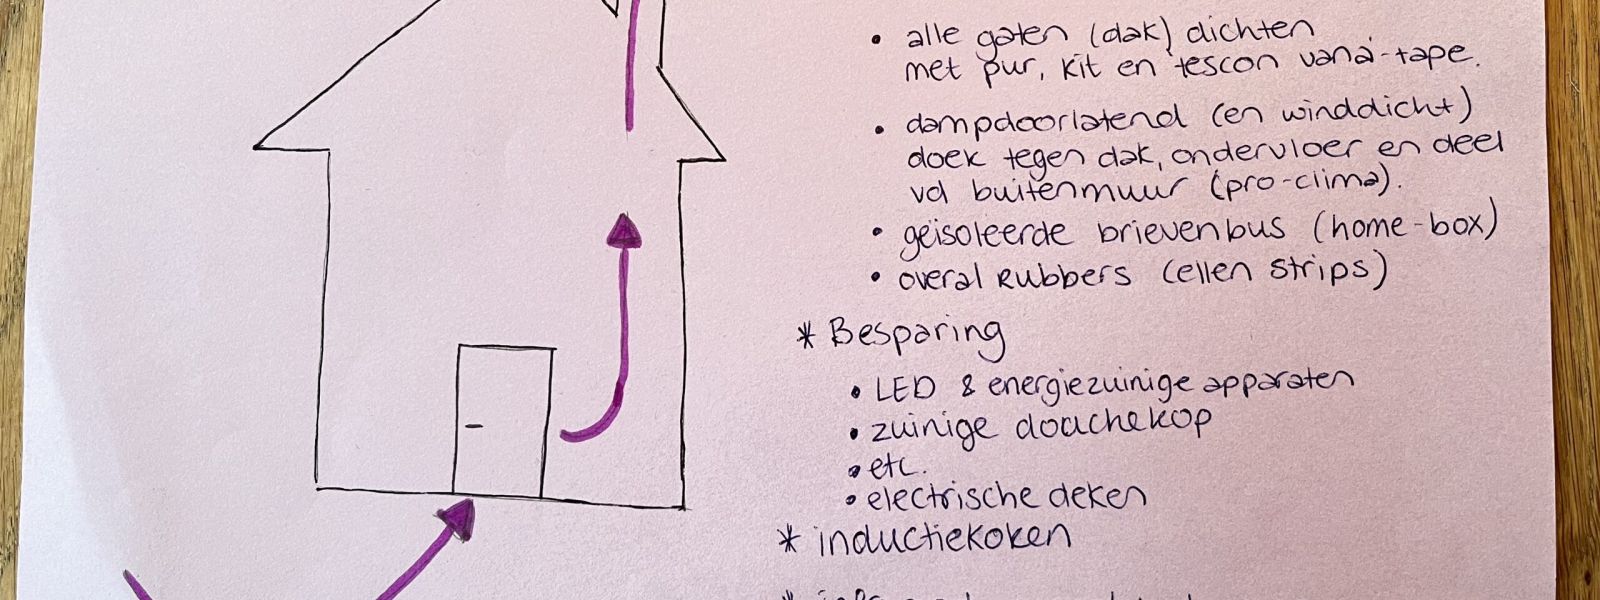 • alle gaten (dak) dichten
met pur, kit en tescon vana-tape.
• dampdoorlatend (en winddicht)
doek tegen dak, ondervloer en deel
vd buitenmuur (pro-clima).
• geïsoleerde brievenbus (home-box)
• overal rubbers (ellen strips)
* Besparing
• LED & energiezuinige apparaten
• zuinige douchekop
• etc.
• electrische deken
* inductiekoken